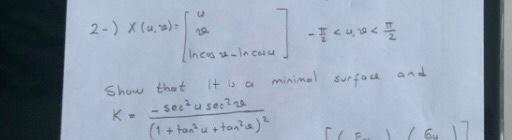 2-) X(u,v)= [ u
v
ln cos v - ln cos u ] -π/2 < u,v < π/2
Show that it is a minimal surface and
K = -sec²u sec²v / (1 + tan²u + tan²v)²